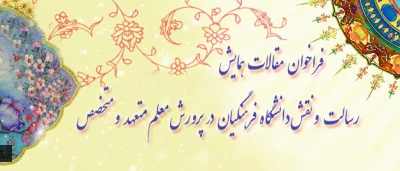 فراخوان مقالات همایش
رسالت و نقش دانشگاه فرهنگیان در پرورش معلم متعهد و متخصص